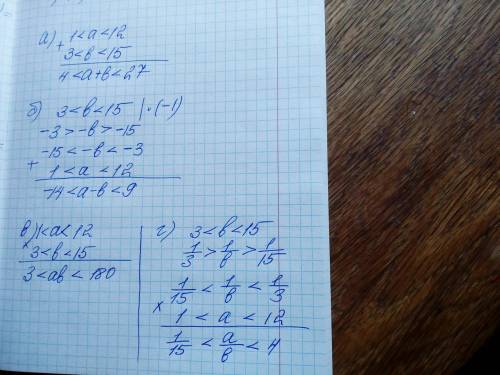 а) 1 < a < 12
+ 3 < в < 15
4 < a + в < 27
б) 3 < в < 15 | · (-1)
-3 > -в > -15
-15 < -в < -3
+ 1 < a < 12
-14 < a - в < 9
в) 1 < a < 12
× 3 < в < 15
3 < aв < 180
г) 3 < в < 15
1/3 > 1/в > 1/15
1/15 < 1/в < 1/3
× 1 < a < 12
1/15 < a/в < 4